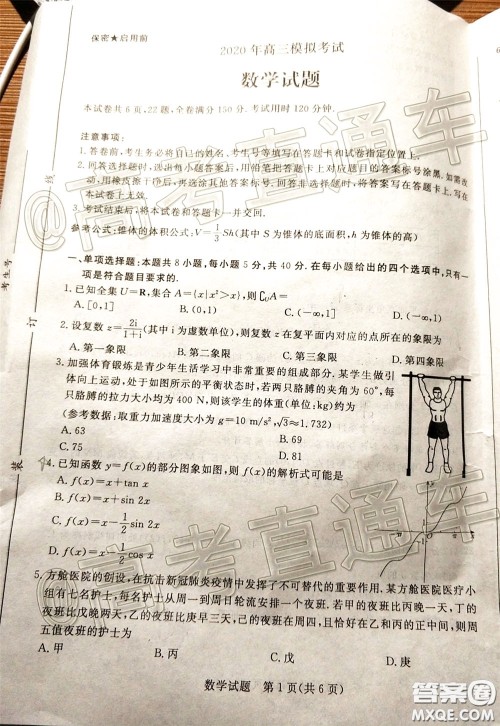 保密★启用前
2020年高三模拟考试
数学试题
本试卷共6页,22题,全卷满分150分.考试用时120分钟.
注意事项:
1.答卷前,考生务必将自己的姓名、考生号等填写在答题卡和试卷指定位置上.
2.回答选择题时,选出每小题答案后,用铅笔把答题卡上对应题目的答案标号涂黑.如需改
动,用橡皮擦干净后,再选涂其他答案标号.回答非选择题时,将答案写在答题卡上.写在
本试卷上无效.
3.考试结束后,将本试卷和答题卡一并交回.
参考公式:锥体的体积公式:V=1/3Sh(其中S为锥体的底面积,h为锥体的高)
一、单项选择题:本题共8小题,每小题5分,共40分.在每小题给出的四个选项中,只有一
项是符合题目要求的.
1.已知全集U=R,集合A={x|x²>x},则∁UA=
A.[0,1] B.(0,1) C.(-∞,1] D.(-∞,1)
2.设复数z=2i/(1+i)(其中i为虚数单位),则复数z在复平面内对应的点所在的象限为
A.第一象限 B.第二象限 C.第三象限 D.第四象限
3.加强体育锻炼是青少年生活学习中非常重要的组成部分.某学生做引
体向上运动,处于如图所示的平衡状态时,若两只胳膊的夹角为60°,每
只胳膊的拉力大小均为400 N,则该学生的体重(单位:kg)约为
(参考数据:取重力加速度大小为g=10 m/s²,√3≈1.732)
A.63 B.69
C.75 D.81
4.已知函数y=f(x)的部分图象如图,则f(x)的解析式可能是
A.f(x)=x+tan x
B.f(x)=x+sin 2x
C.f(x)=x-1/2sin 2x
D.f(x)=x-1/2cos x
5.方舱医院的创设,在抗击新冠肺炎疫情中发挥了不可替代的重要作用.某方舱医院医疗小
组有七名护士,每名护士从周一到周日轮流安排一个夜班.若甲的夜班比丙晚一天,丁的
夜班比戊晚两天,乙的夜班比庚早三天,己的夜班在周四,且恰好在乙和丙的正中间,则周
五值夜班的护士为
A.甲 B.丙 C.戊 D.庚
数学试题 第1页(共6页)
考生号
线
订
装
@高考直通车
@高考直通车
答案圈
MXQE.COM